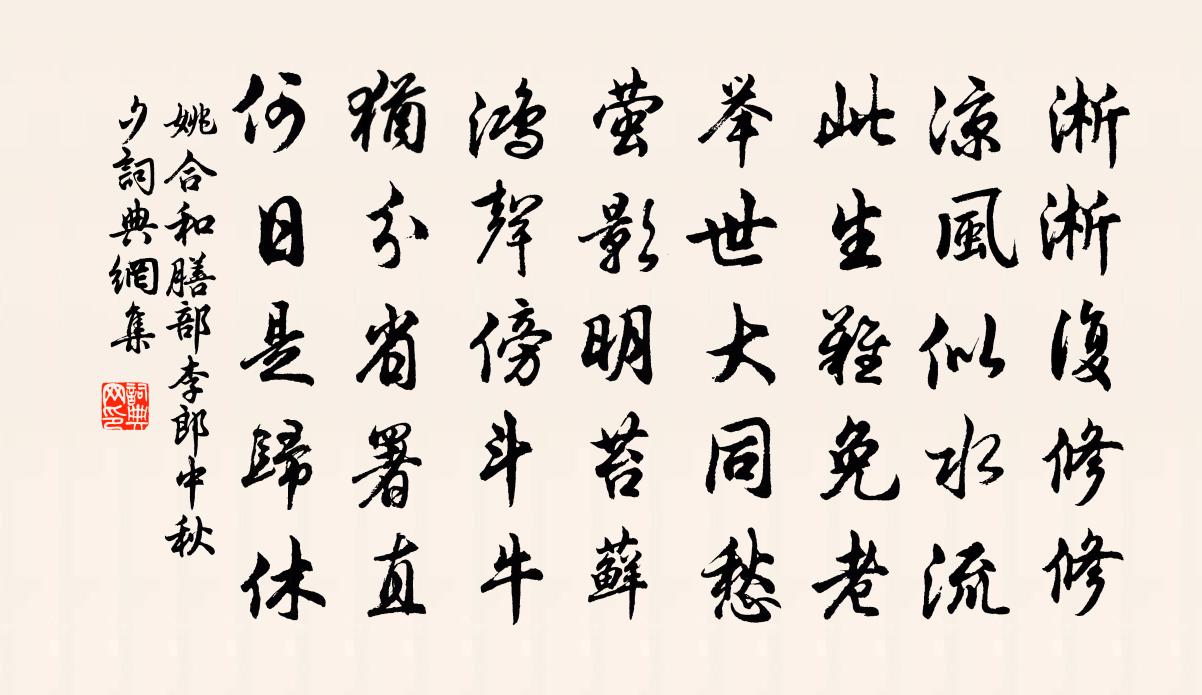 淅淅復修修
凉風似水流
此生難免老
举世大同愁
萤影明苔蘚
鴻聲傍斗牛
猶分省署直
何日是歸休
姚合和膳部李郎中秋
夕詞典網集
詞典
网印